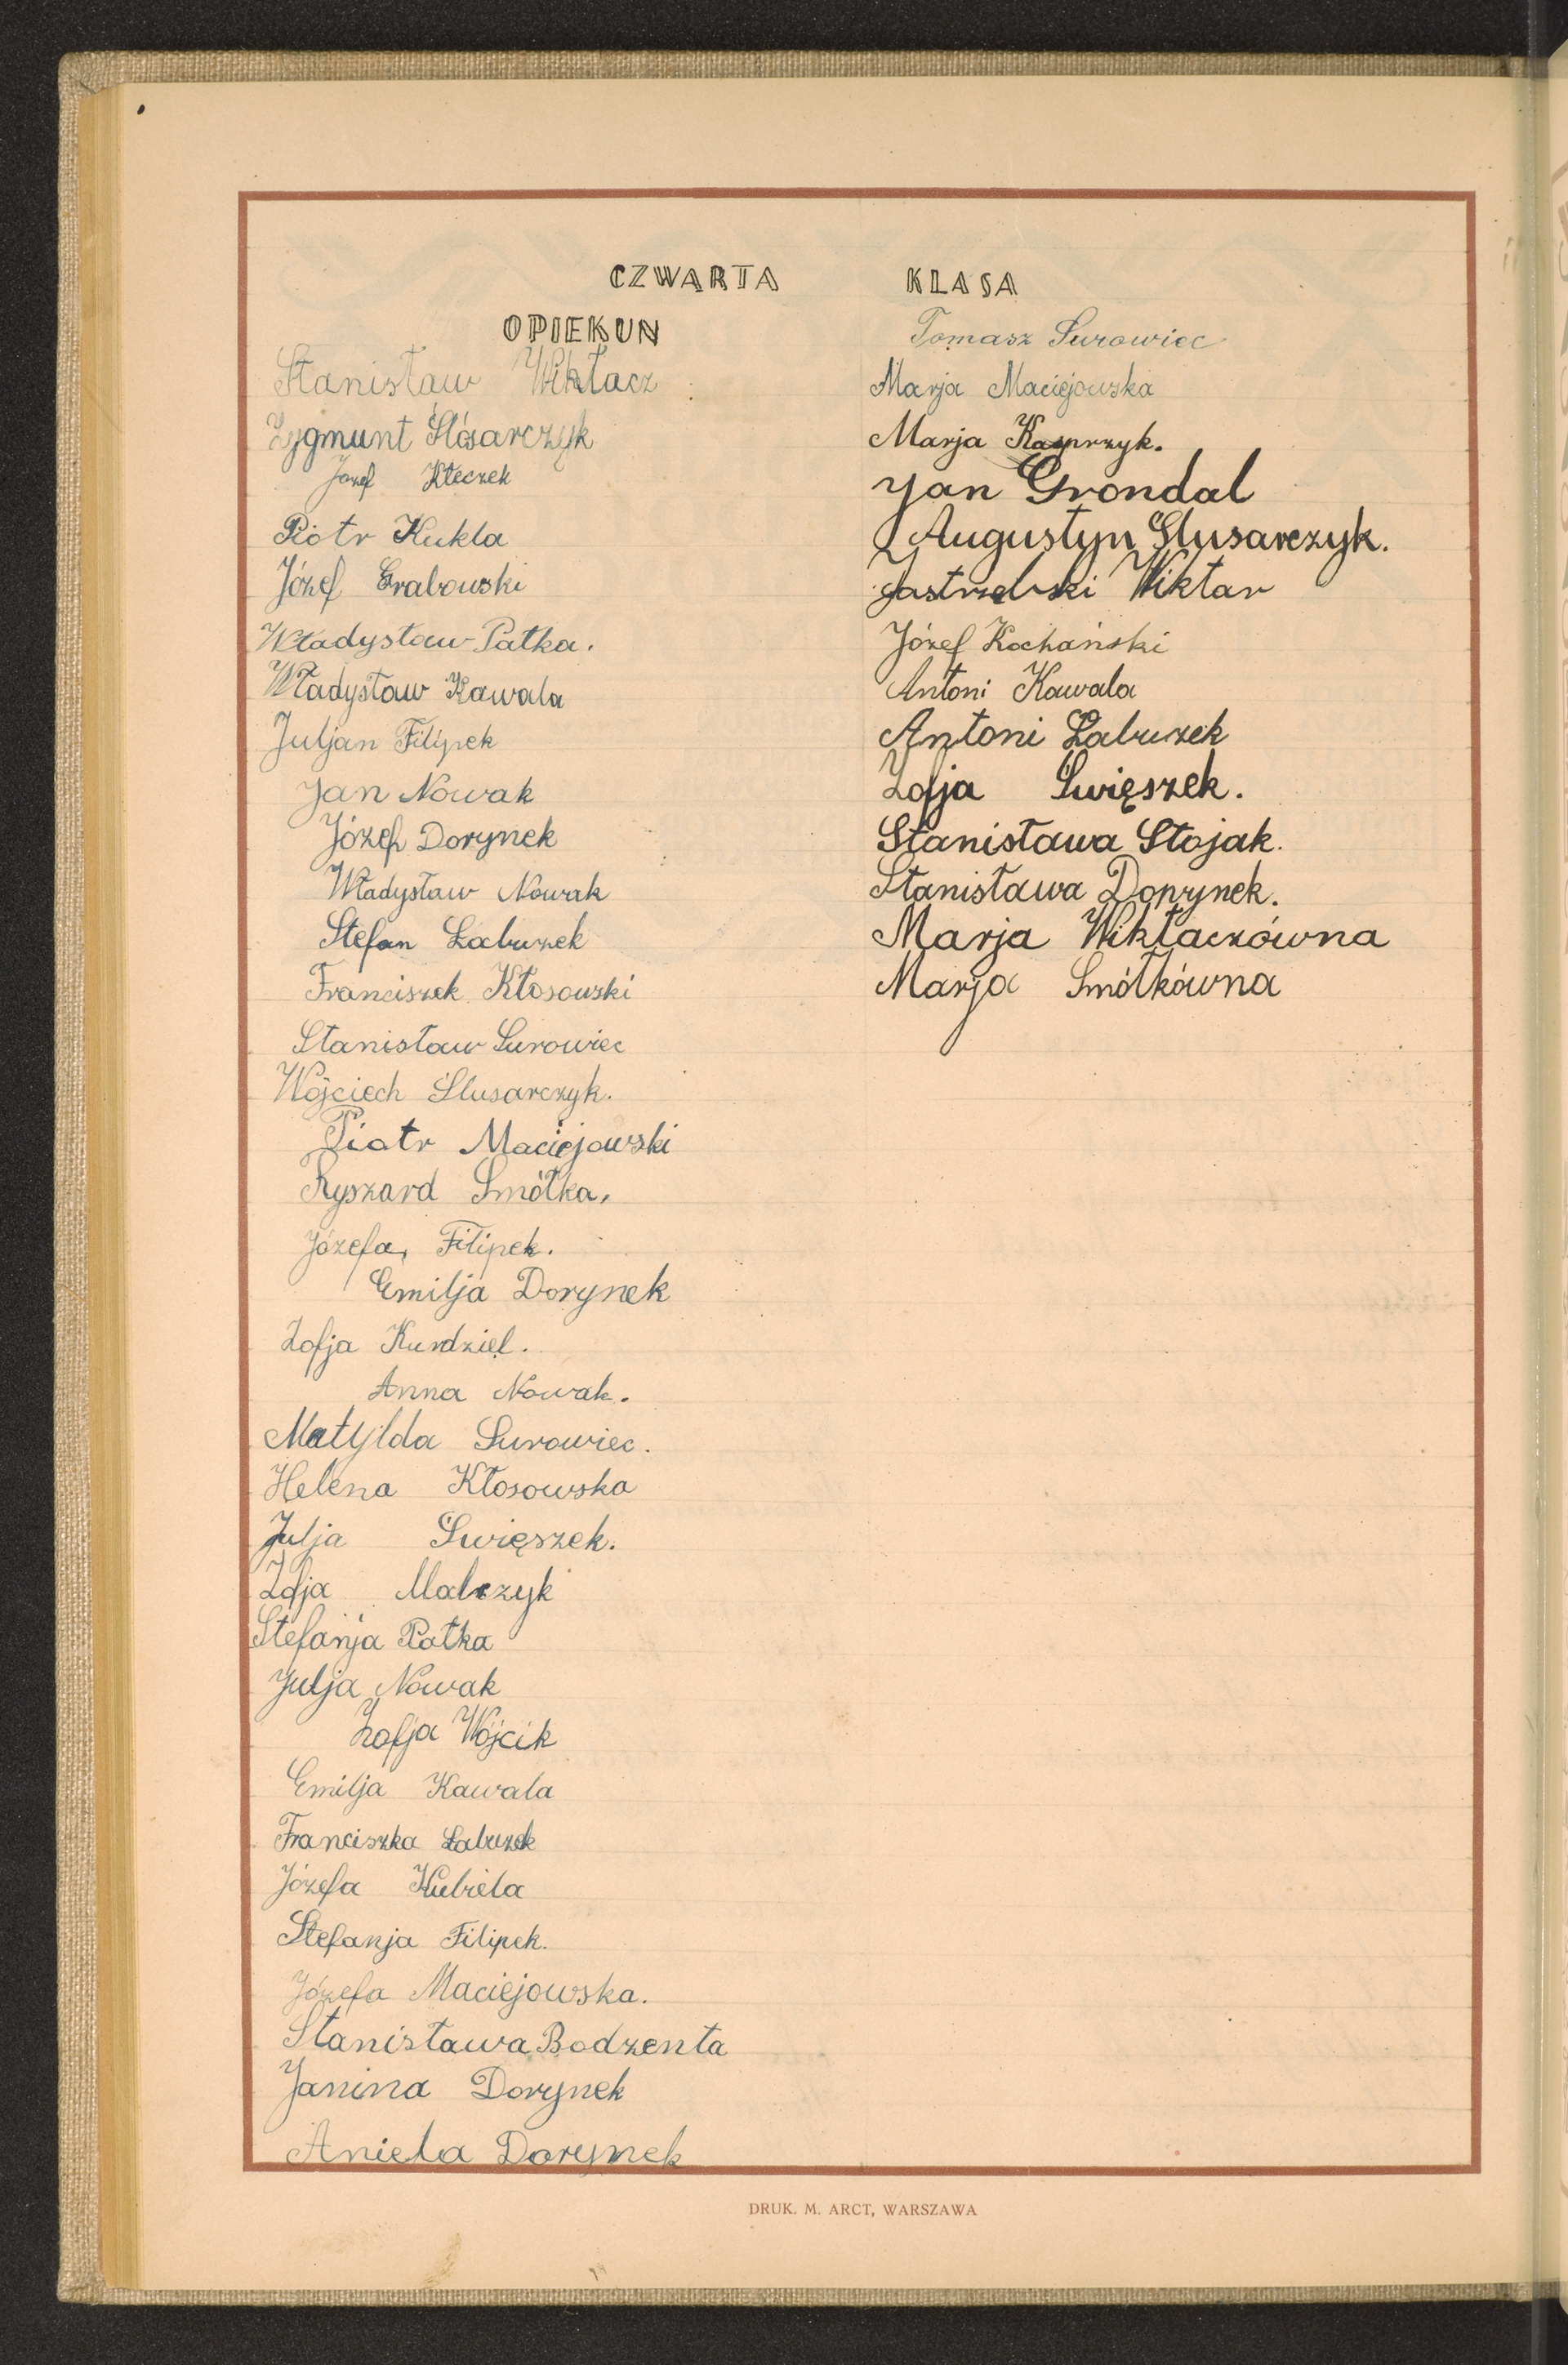 CZWARTA KLASA
OPIEKUN
Stanisław Wiktacz
Zygmunt Ślósarczyk
Józef Kleczek
Piotr Kukla
Józef Grabowski
Władysław Patka.
Władysław Kawala
Juljan Filipek
Jan Nowak
Józef Dorynek
Władysław Nowak
Stefan Łabuzek
Franciszek Kłosowski
Stanisław Surowiec
Wojciech Ślusarczyk.
Piotr Maciejowski
Ryszard Smółka.
Józefa Filipek.
Emilja Dorynek
Zofja Kurdziel.
Anna Nowak.
Matylda Surowiec.
Helena Kłosowska
Julja Święszek.
Zofja Malczyk
Stefanja Patka
Julja Nowak
Zofja Wójcik
Emilja Kawala
Franciszka Łabuzek
Józefa Kubiela
Stefanja Filipek.
Józefa Maciejowska.
Stanisława Bodzenta
Janina Dorynek
Aniela Dorynek
Tomasz Surowiec
Marja Maciejowska
Marja Kasprzyk.
Jan Grondal
Augustyn Ślusarczyk.
Jastrzebski Wiktor
Józef Kochański
Antoni Kawala
Antoni Łabuzek
Zofja Święszek.
Stanisława Stojak.
Stanisława Dorynek.
Marja Wiktaczówna
Marja Smółkówna
DRUK. M. ARCT, WARSZAWA